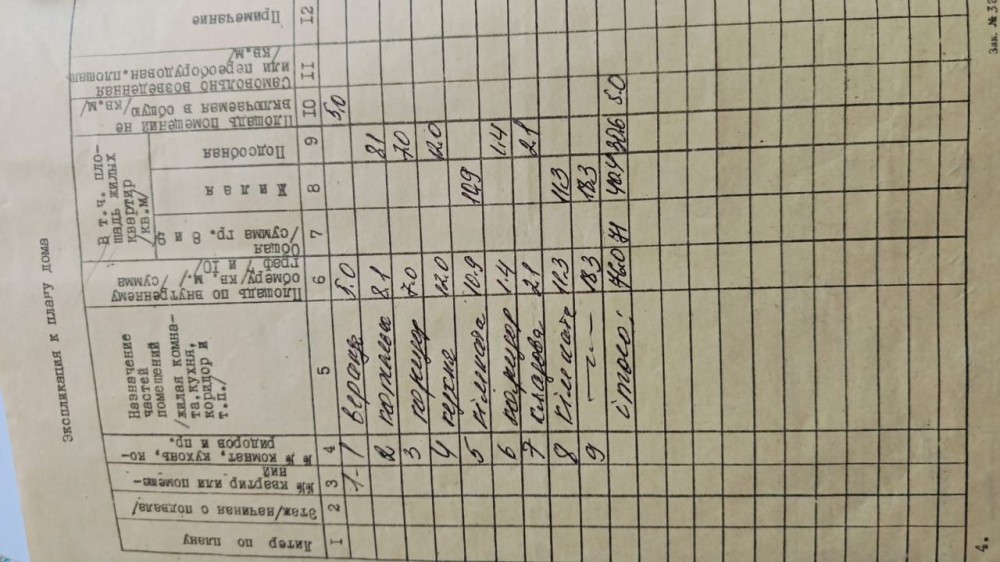 Экспликация к плану дома
Литер по плану
Этаж/начиная с подвала/
№№ квартир или помеще-
ний
№ № комнат, кухонь, ко-
ридоров и пр.
Назначение
частей
помещений
/жилая комна-
та, кухня,
коридор и
т.п./
Площадь по внутреннему
обмеру/кв. м./ / сумма
граф 7 и 10/
В т.ч. пло-
щадь жилых
квартир
/кв.м/
Общая
/сумма гр. 8 и 9
Жилая
Подсобная
Площадь помещений не
включаемая в общую /кв.м/
Самовольно возведенная
или переоборудован.площадь
/кв.м/
Примечание
1 2 3 4 5 6 7 8 9 10 11 12
1- 1 веранда 5.0 5.0
2 8.1 8.1
3 коридор 7.0 7.0
4 кухня 12.0 12.0
5 кімната 10.9 10.9
6 коридор 1.4 1.4
7 кладова 2.1 2.1
8 кімната 11.3 11.3
9 —〃— 18.3 18.3
їтого: 76.0 71 30.6 5.0
4.
Зак. № 32